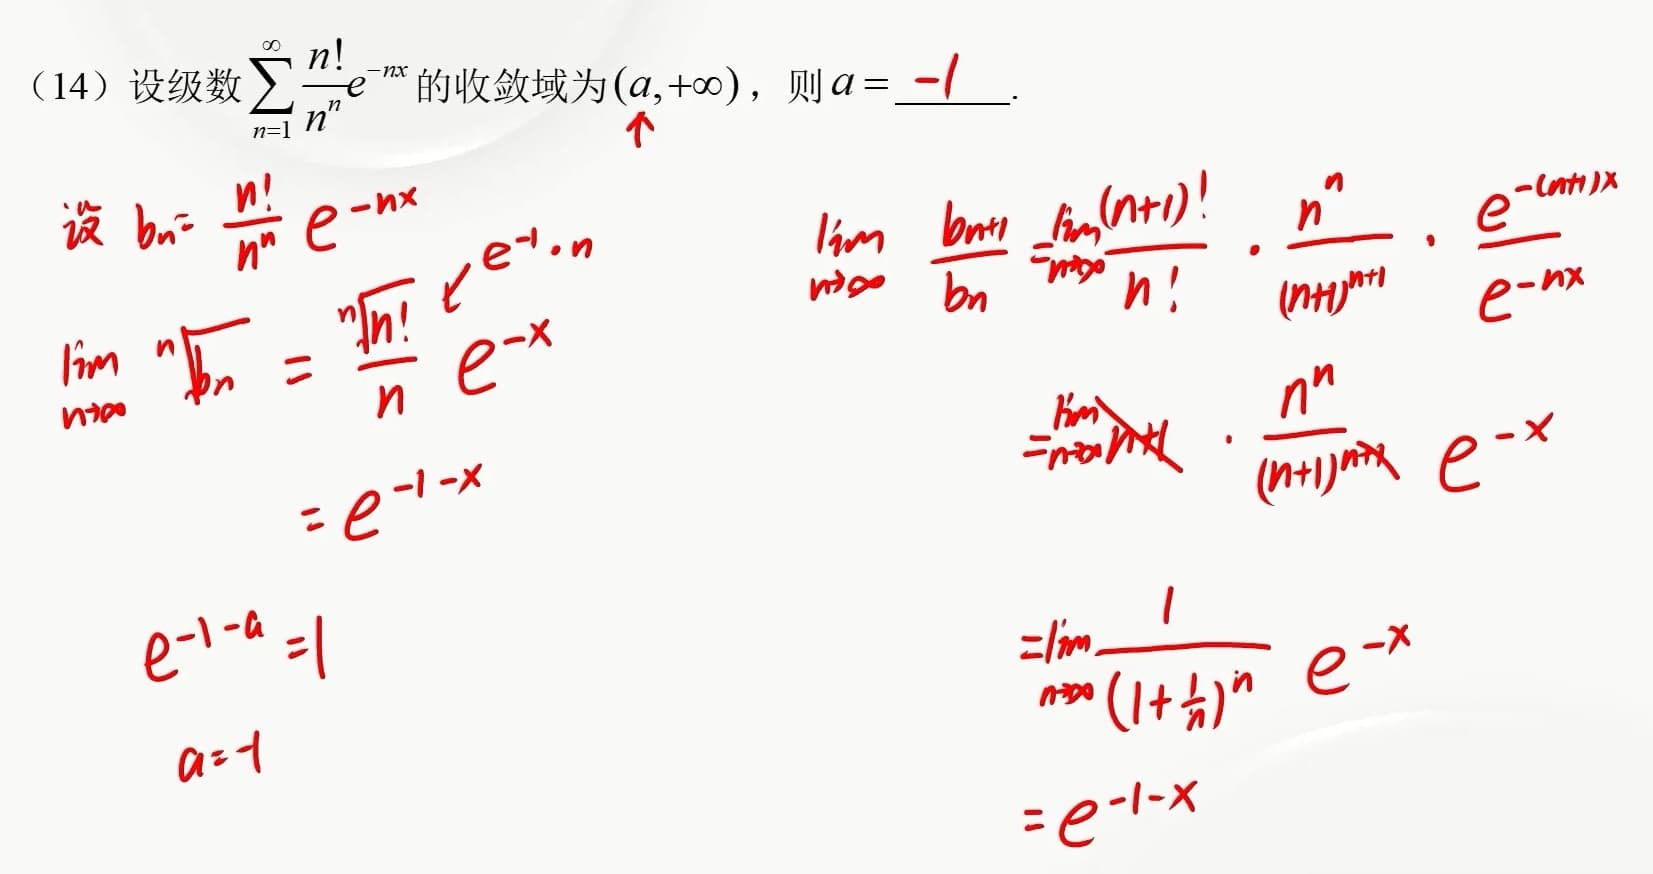 （14）设级数 $\sum_{n=1}^{\infty} \frac{n!}{n^n} e^{-nx}$ 的收敛域为 $(a,+\infty)$，则 $a=$ -1 .
↑
设 $b_n = \frac{n!}{n^n} e^{-nx}$
$e^{-1} \cdot n$
$\lim_{n\to\infty} \sqrt[n]{b_n} = \frac{\sqrt[n]{n!}}{n} e^{-x}$
$= e^{-1-x}$
$e^{-1-a} = 1$
$a = -1$
$\lim_{n\to\infty} \frac{b_{n+1}}{b_n} = \lim_{n\to\infty} \frac{(n+1)!}{n!} \cdot \frac{n^n}{(n+1)^{n+1}} \cdot \frac{e^{-(n+1)x}}{e^{-nx}}$
$= \lim_{n\to\infty} n+1 \cdot \frac{n^n}{(n+1)^{n+1}} e^{-x}$
$= \lim_{n\to\infty} \frac{1}{(1+\frac{1}{n})^n} e^{-x}$
$= e^{-1-x}$